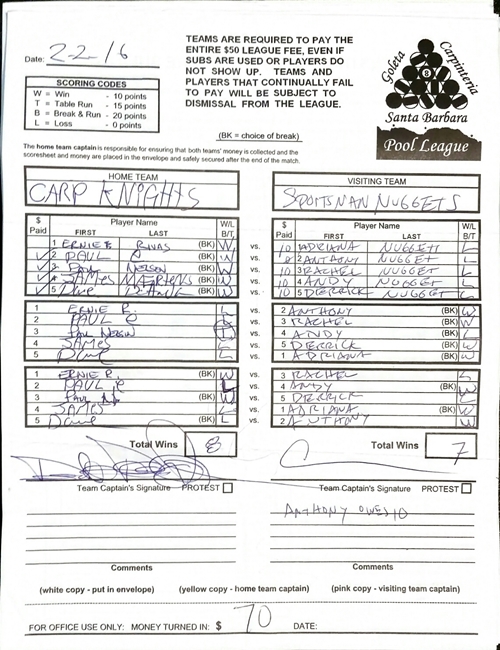 Date: 2-2-16
TEAMS ARE REQUIRED TO PAY THE
ENTIRE $50 LEAGUE FEE, EVEN IF
SUBS ARE USED OR PLAYERS DO
NOT SHOW UP. TEAMS AND
PLAYERS THAT CONTINUALLY FAIL
TO PAY WILL BE SUBJECT TO
DISMISSAL FROM THE LEAGUE.
Goleta Carpinteria
8
Santa Barbara
Pool League
SCORING CODES
W = Win - 10 points
T = Table Run - 15 points
B = Break & Run - 20 points
L = Loss - 0 points
(BK = choice of break)
The home team captain is responsible for ensuring that both teams' money is collected and the
scoresheet and money are placed in the envelope and safely secured after the end of the match.
HOME TEAM VISITING TEAM
CARP KNIGHTS SPORTSMAN NUGGETS
$ Paid Player Name FIRST LAST W/L B/T $ Paid Player Name FIRST LAST W/L B/T
1 ERNIE R. RIVAS (BK) W vs. 10 1 ADRIANA NUGGETT L
2 PAUL (BK) W vs. 2 ANTHONY NUGGET L
3 PAUL NELSON (BK) W vs. 10 3 RACHEL NUGGET L
4 JAMES (BK) W vs. 10 4 ANDY NUGGET L
5 (BK) W vs. 10 5 DERRICK NUGGET L
1 ERNIE R. L vs. 2 ANTHONY (BK) W
2 PAUL L vs. 3 RACHEL (BK) W
3 PAUL vs. 4 ANDY (BK) L
4 JAMES L vs. 5 DERRICK (BK) W
5 L vs. 1 ADRIANA (BK) W
1 ERNIE R. (BK) W vs. 3 RACHEL L
2 PAUL (BK) L vs. 4 ANDY W
3 PAUL (BK) W vs. 5 DERRICK L
4 JAMES (BK) L vs. 1 ADRIANA W
5 (BK) L vs. 2 ANTHONY W
Total Wins 8 Total Wins 7
Team Captain's Signature PROTEST Team Captain's Signature PROTEST
ANTHONY OWES 10
Comments Comments
(white copy - put in envelope) (yellow copy - home team captain) (pink copy - visiting team captain)
FOR OFFICE USE ONLY: MONEY TURNED IN: $ 70 DATE: